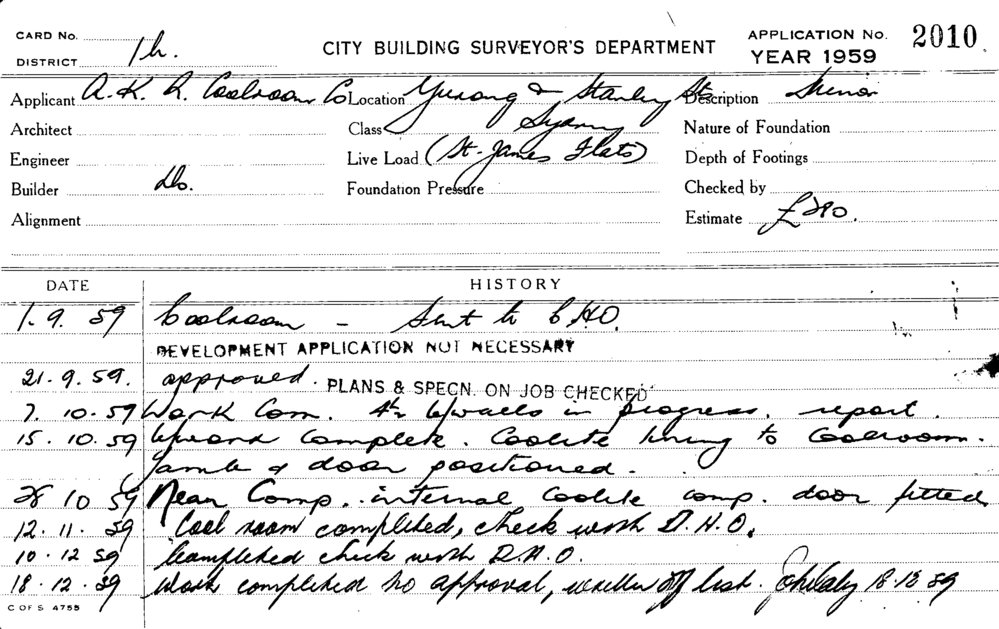 CARD No.
DISTRICT 1h.
CITY BUILDING SURVEYOR'S DEPARTMENT
APPLICATION No. 2010
YEAR 1959
Applicant A. K. R. Coolroom Co Location Yurong & Stanley Sts Description Minor
Architect Class Sydney Nature of Foundation
Engineer Live Load (St. James Flats) Depth of Footings
Builder Do. Foundation Pressure Checked by
Alignment Estimate £280.
DATE HISTORY
1. 9. 59 Coolroom - Sent to C.H.O.
DEVELOPMENT APPLICATION NOT NECESSARY
21. 9. 59. approved. PLANS & SPECN. ON JOB CHECKED
7. 10. 59 Work Com. walls in progress. report.
15. 10. 59 complete. Coolite lining to Coolroom.
Jamb & door positioned.
28 10 59 Near Comp. internal Coolite comp. door fitted
12. 11. 59 Cool room completed, check with D.H.O.
10. 12 59 Completed check with D.H.O.
18. 12. 59 Work completed no approval, written off list. 18.12 59
C OF S 4755